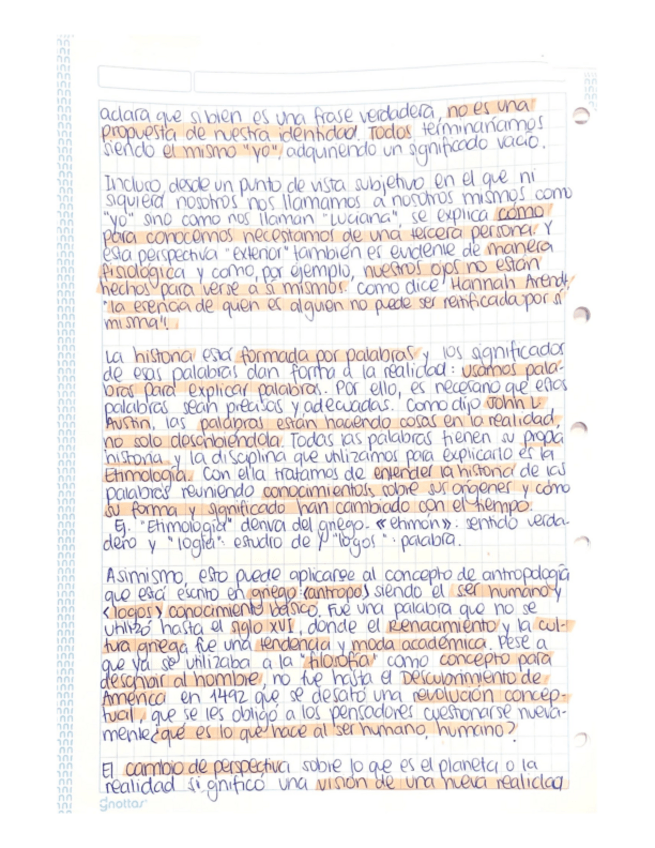 aclara que si bien es una frase verdadera, no es una
propuesta de nuestra identidad. Todos terminaríamos
siendo el mismo "yo", adquiriendo un significado vacío.
Incluso, desde un punto de vista subjetivo en el que ni
siquiera nosotros nos llamamos a nosotros mismos como
"yo" sino como nos llaman "Luciana", se explica como
para conocernos necesitamos de una tercera persona. Y
esta perspectiva "exterior" también es evidente de manera
fisiológica y como, por ejemplo, nuestros ojos no están
hechos para verse a sí mismos. Como dice Hannah Arendt,
"la esencia de quien es alguien no puede ser reitificada por sí
misma".
La historia está formada por palabras y los significados
de esas palabras dan forma a la realidad: usamos pala-
bras para explicar palabras. Por ello, es necesario que estas
palabras sean precisas y adecuadas. Como dijo John L.
Austin, las palabras están haciendo cosas en la realidad,
no solo describiéndola. Todas las palabras tienen su propia
historia y la disciplina que utilizamos para explicarlo es la
Etimología. Con ella tratamos de entender la historia de las
palabras reuniendo conocimientos sobre sus orígenes y cómo
su forma y significado han cambiado con el tiempo.
Ej. "Etimología" deriva del griego. «ethmon»: sentido verda-
dero y "logia": estudio de y "logos": palabra.
Asimismo, esto puede aplicarse al concepto de antropología
que está escrito en griego (antropo) siendo el ser humano y
<logos> conocimiento básico. Fue una palabra que no se
utilizó hasta el siglo XVI, donde el Renacimiento y la cul-
tura griega fue una tendencia y moda académica. Pese a
que ya se utilizaba a la "filosofía" como concepto para
describir al hombre, no fue hasta el Descubrimiento de
América en 1492 que se desató una revolución concep-
tual, que se les obligó a los pensadores cuestionarse nueva-
mente ¿qué es lo que hace al ser humano, humano?
El cambio de perspectiva sobre lo que es el planeta o la
realidad significó una visión de una nueva realidad
Gnottas